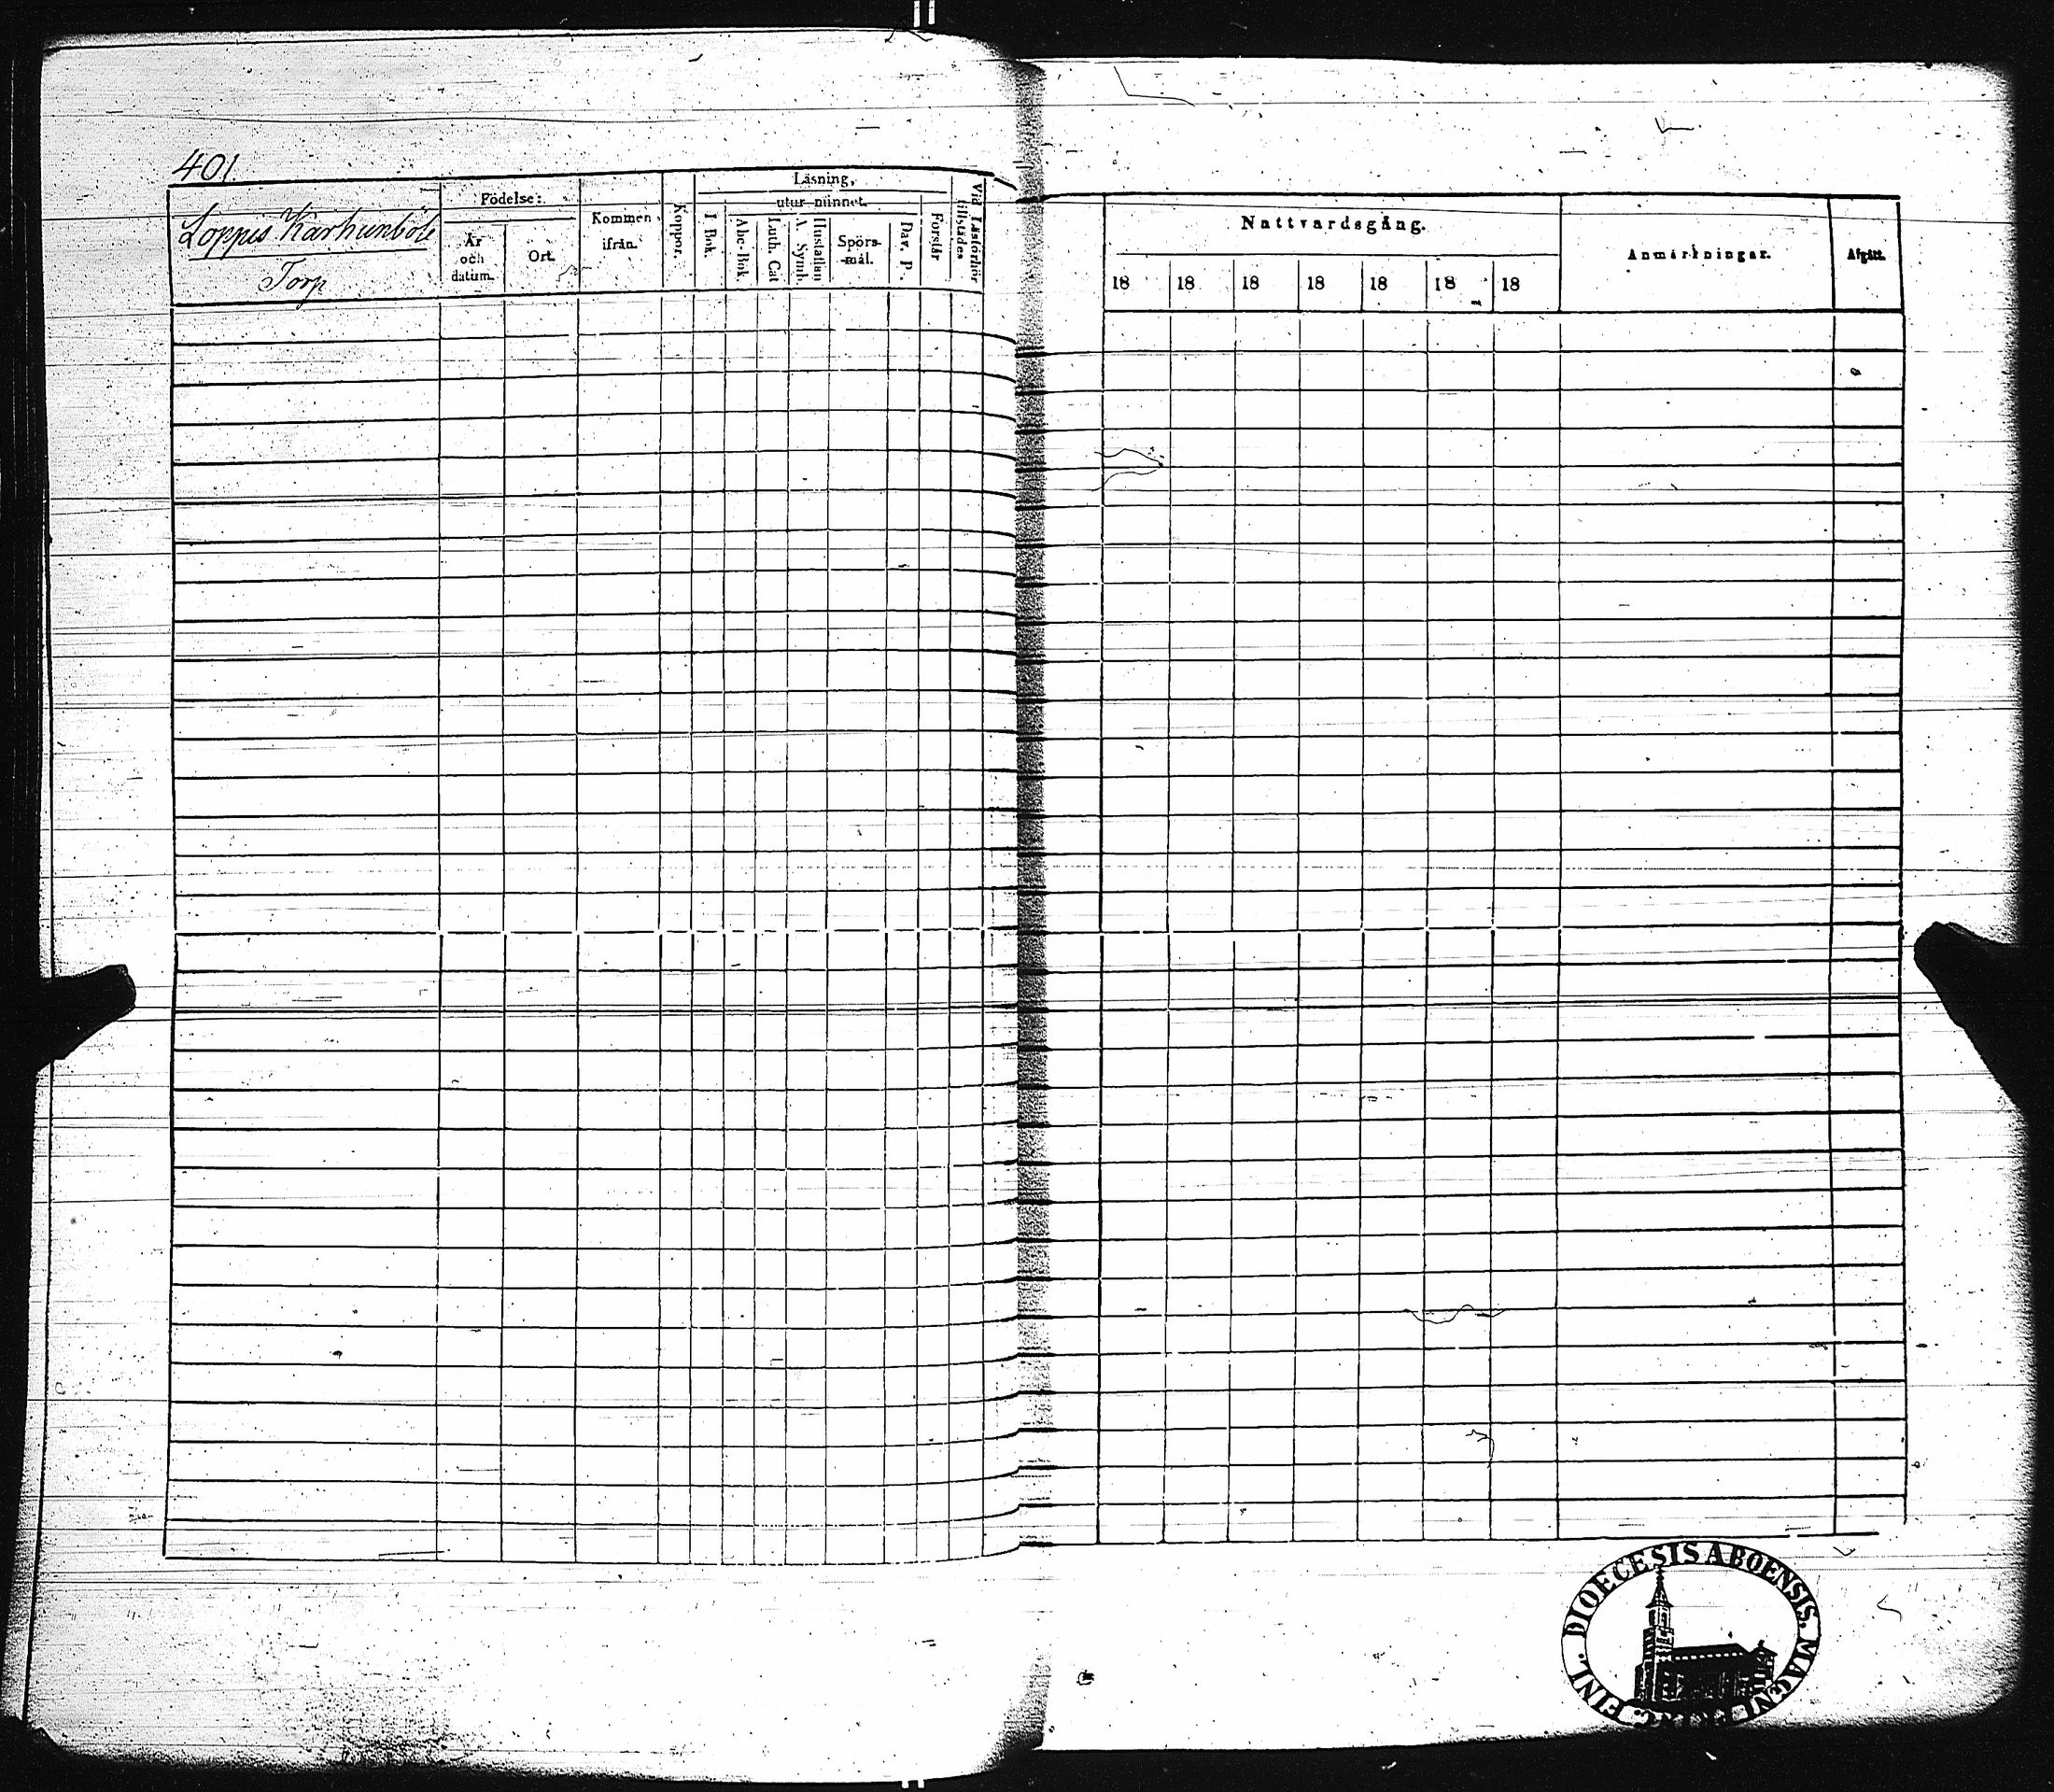 401
Loppis Karhunböle
Torp
Födelse:
År
och
datum.
Ort.
Kommen
ifrån.
Koppor.
Läsning,
utur minnet.
I Bok.
Abc-Bok.
Luth. Cat
A. Symb.
Hustaflan
Spörs-
-mål.
Dav. P.
Förstår
Vid Läsförhör
tillstädes
Nattvardsgång.
18 18 18 18 18 18 18
Anmärkningar.
Afgått.
DIOECESIS ABOENSIS, MAGNI
FINL.